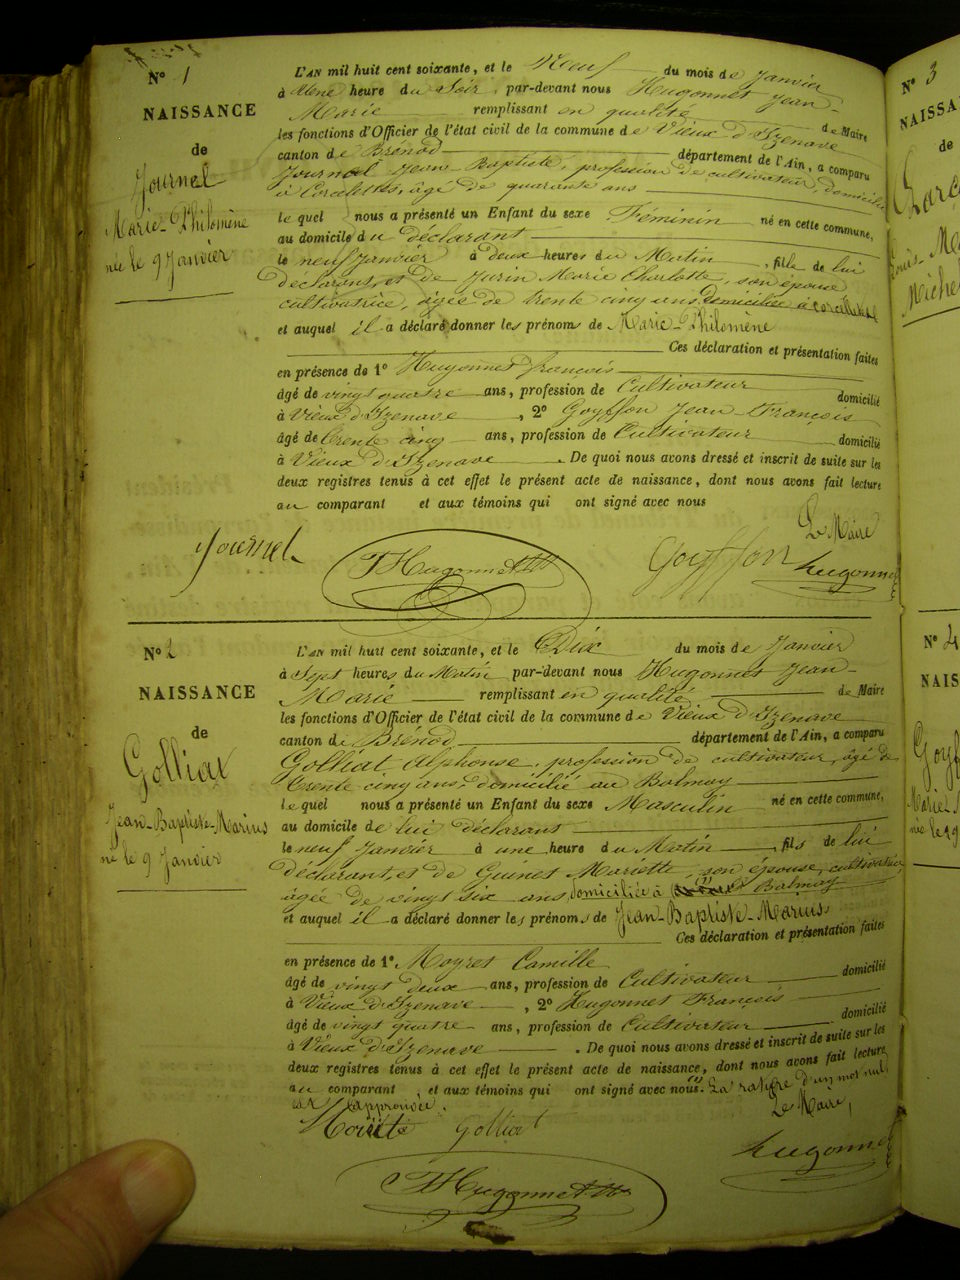 N° 1
NAISSANCE
de
Journel
Marie-Philomène
née le 9 Janvier
L'AN mil huit cent soixante, et le Neuf du mois de Janvier
à heure du Soir, par-devant nous Hugonnet Jean-
Marie remplissant en qualité de Maire
les fonctions d'Officier de l'état civil de la commune de Vieux d'Izenave
canton de Brénod département de l'Ain, a comparu
Journel Jean-Baptiste, profession de cultivateur, domicilié
à Corcelettes, âgé de quarante ans
le quel nous a présenté un Enfant du sexe Féminin né en cette commune,
au domicile du déclarant
le neuf Janvier à deux heures du Matin, fille de lui
déclarant, et de Jurin Marie Charlotte, son épouse
cultivatrice, âgée de trente cinq ans, Domiciliée à
et auquel il a déclaré donner les prénoms de Marie-Philomène
Ces déclaration et présentation faites
en présence de 1° Hugonnet françois
âgé de vingt quatre ans, profession de Cultivateur domicilié
à Vieux d'Izenave, 2° Goyffon Jean-François
âgé de trente cinq ans, profession de Cultivateur domicilié
à Vieux d'Izenave. De quoi nous avons dressé et inscrit de suite sur les
deux registres tenus à cet effet le présent acte de naissance, dont nous avons fait lecture
au comparant et aux témoins qui ont signé avec nous
Le Maire
Journel Hugonnet Goyffon Hugonnet
N° 2
NAISSANCE
de
Golliat
Jean-Baptiste-Marius
né le 9 Janvier
L'AN mil huit cent soixante, et le Dix du mois de Janvier
à Sept heures du Matin par-devant nous Hugonnet Jean-
Marie remplissant en qualité de Maire
les fonctions d'Officier de l'état civil de la commune de Vieux d'Izenave
canton de Brénod, département de l'Ain, a comparu
Golliat Alphonse, profession de cultivateur, âgé de
trente cinq ans, domicilié au Balmay
le quel nous a présenté un Enfant du sexe Masculin né en cette commune,
au domicile de lui déclarant
le neuf Janvier à une heure du Matin, fils de lui
déclarant, et de Guinet Mariette, son épouse, cultivatrice,
âgée de vingt six ans, domiciliée à Balmay
et auquel il a déclaré donner les prénoms de Jean-Baptiste-Marius
Ces déclaration et présentation faites
en présence de 1° Moyret Camille
âgé de vingt deux ans, profession de Cultivateur domicilié
à Vieux d'Izenave, 2° Hugonnet François
âgé de vingt quatre ans, profession de Cultivateur domicilié
à Vieux d'Izenave. De quoi nous avons dressé et inscrit de suite sur les
deux registres tenus à cet effet le présent acte de naissance, dont nous avons fait lecture
au comparant, et aux témoins qui ont signé avec nous. La rature d'un mot nul
est approuvée. Le Maire,
Golliat Hugonnet
Hugonnet
N° 3
NAISSANCE
de
N° 4
NAIS
de